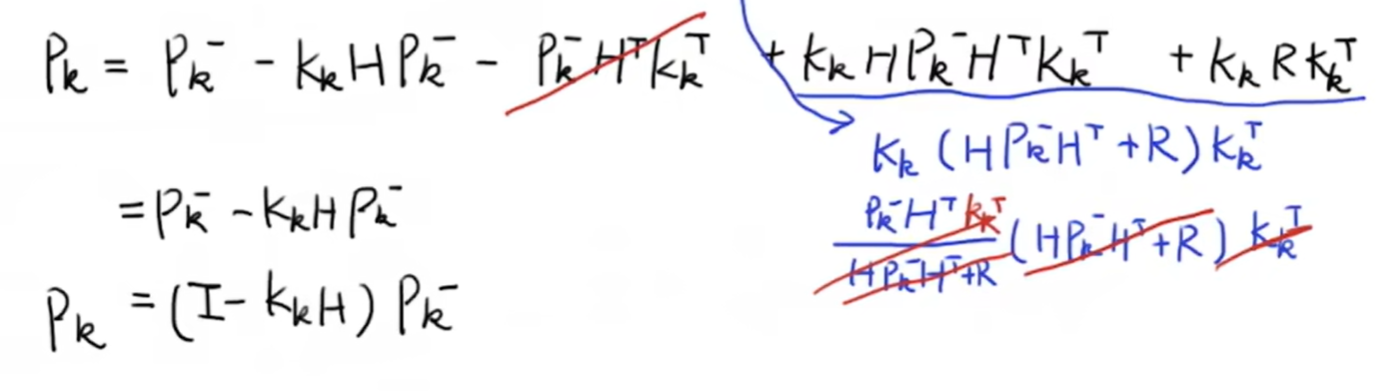 P_k = P_k^- - K_k H P_k^- - P_k^- H^T K_k^T + K_k H P_k^- H^T K_k^T + K_k R K_k^T
K_k (H P_k^- H^T + R) K_k^T
= P_k^- - K_k H P_k^-
P_k^- H^T K_k^T / H P_k^- H^T + R (H P_k^- H^T + R) K_k^T
P_k = (I - K_k H) P_k^-